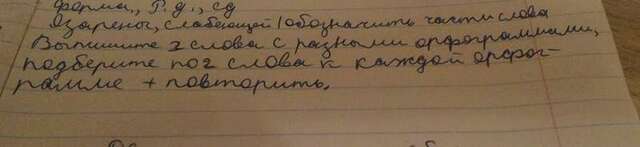 форма, Р.д., ед
Озарены, слабеющей / обозначить части слова
Выпишите 2 слова с разными орфограммами,
подберите по 2 слова к каждой орфог-
рамме + повторить.